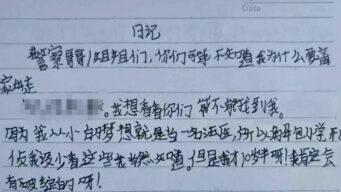 Date
日记
警察哥哥/姐姐们,你们可能不知道我为什么要离
家出走
。我想看看你们能不能找到我。
因为我从小的梦想就是当一名法医,所以我每包小学开
我没少看这些我当然知道。但是我才10岁呀!我肯定
有破绽的呀!